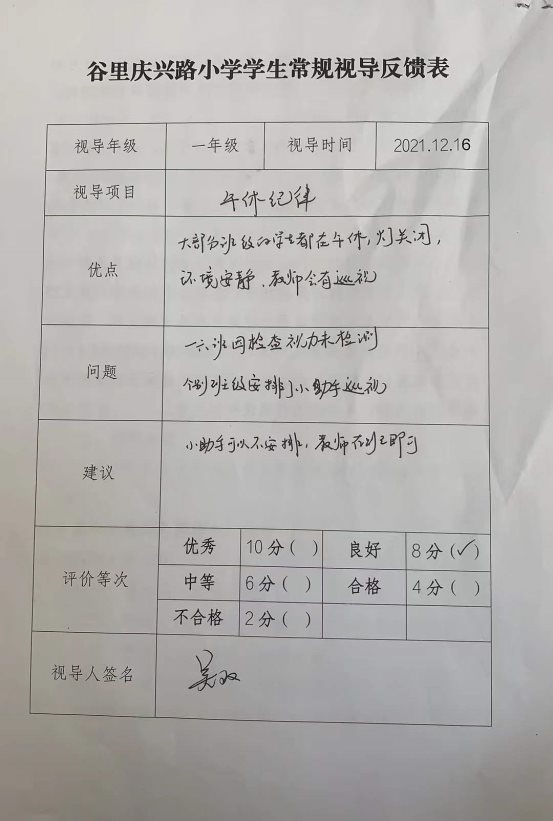 谷里庆兴路小学学生常规视导反馈表
视导年级 一年级 视导时间 2021.12.16
视导项目 午休纪律
优点 大部分班级的学生都在午休,灯关闭,
环境安静.教师会有巡视
问题 一六班因检查视力未检测
个别班级安排了小助手巡视
建议 小助手可以不安排,教师在班即可
评价等次 优秀 10分( ) 良好 8分(✓)
中等 6分( ) 合格 4分( )
不合格 2分( )
视导人签名 吴双